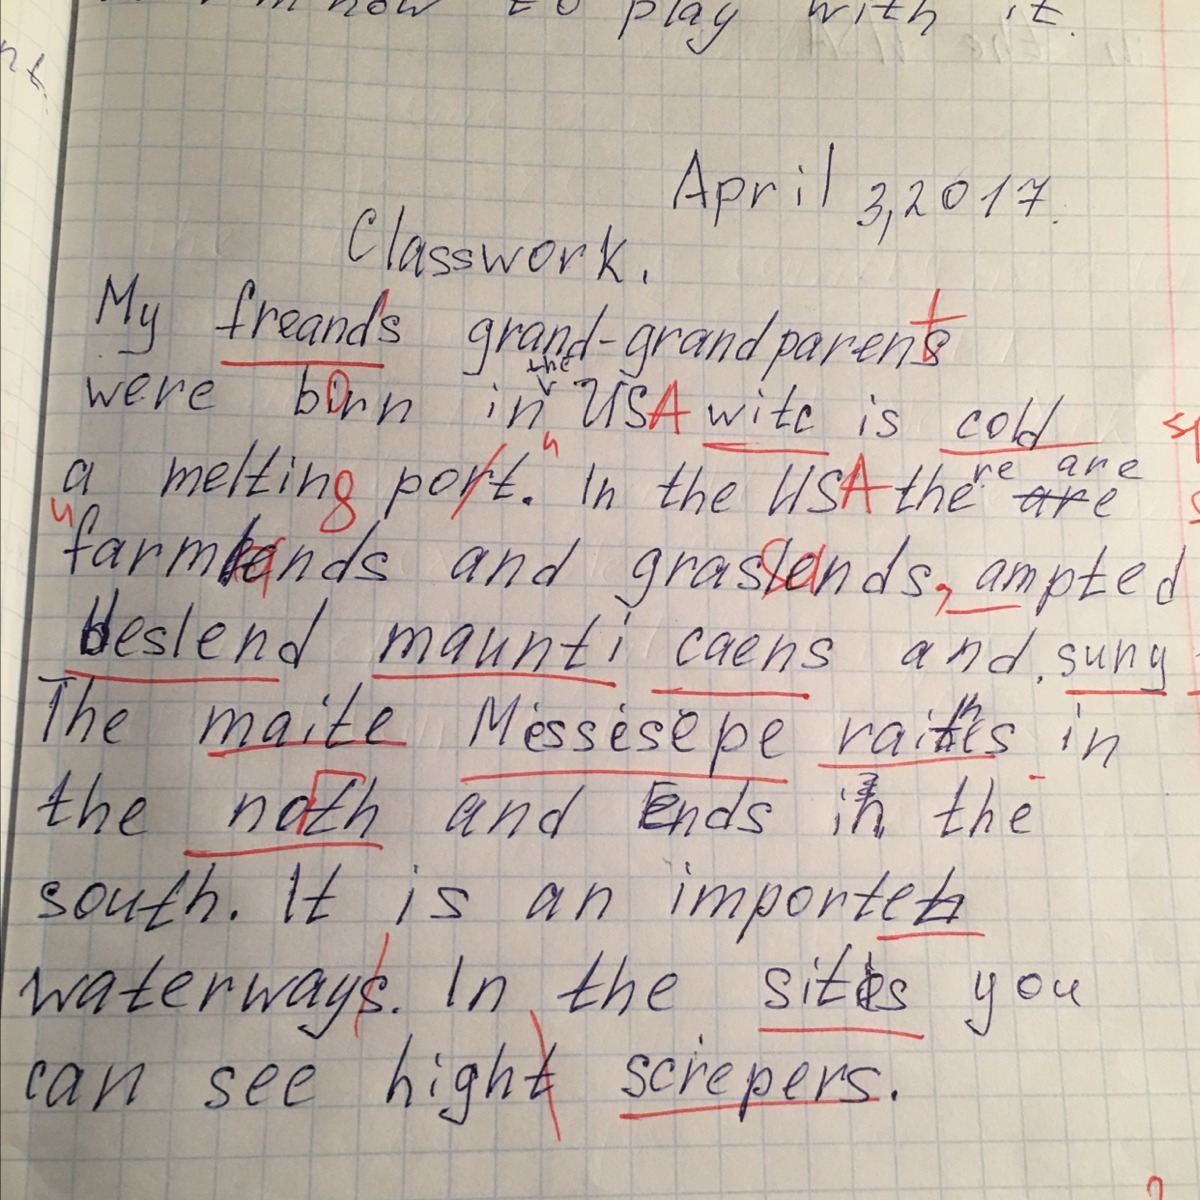 how to play with it.
April 3, 2017.
Classwork.
My freands grand-grandparents
were born in the USA witc is cold
a "melting port." In the USA there are
farmlands and graslands, ampted
deslend maunti caens and sung
The maite Messesepe raithes in
the noth and Ends in the
south. It is an importeth
waterways. In the sitis you
can see hight screpers.